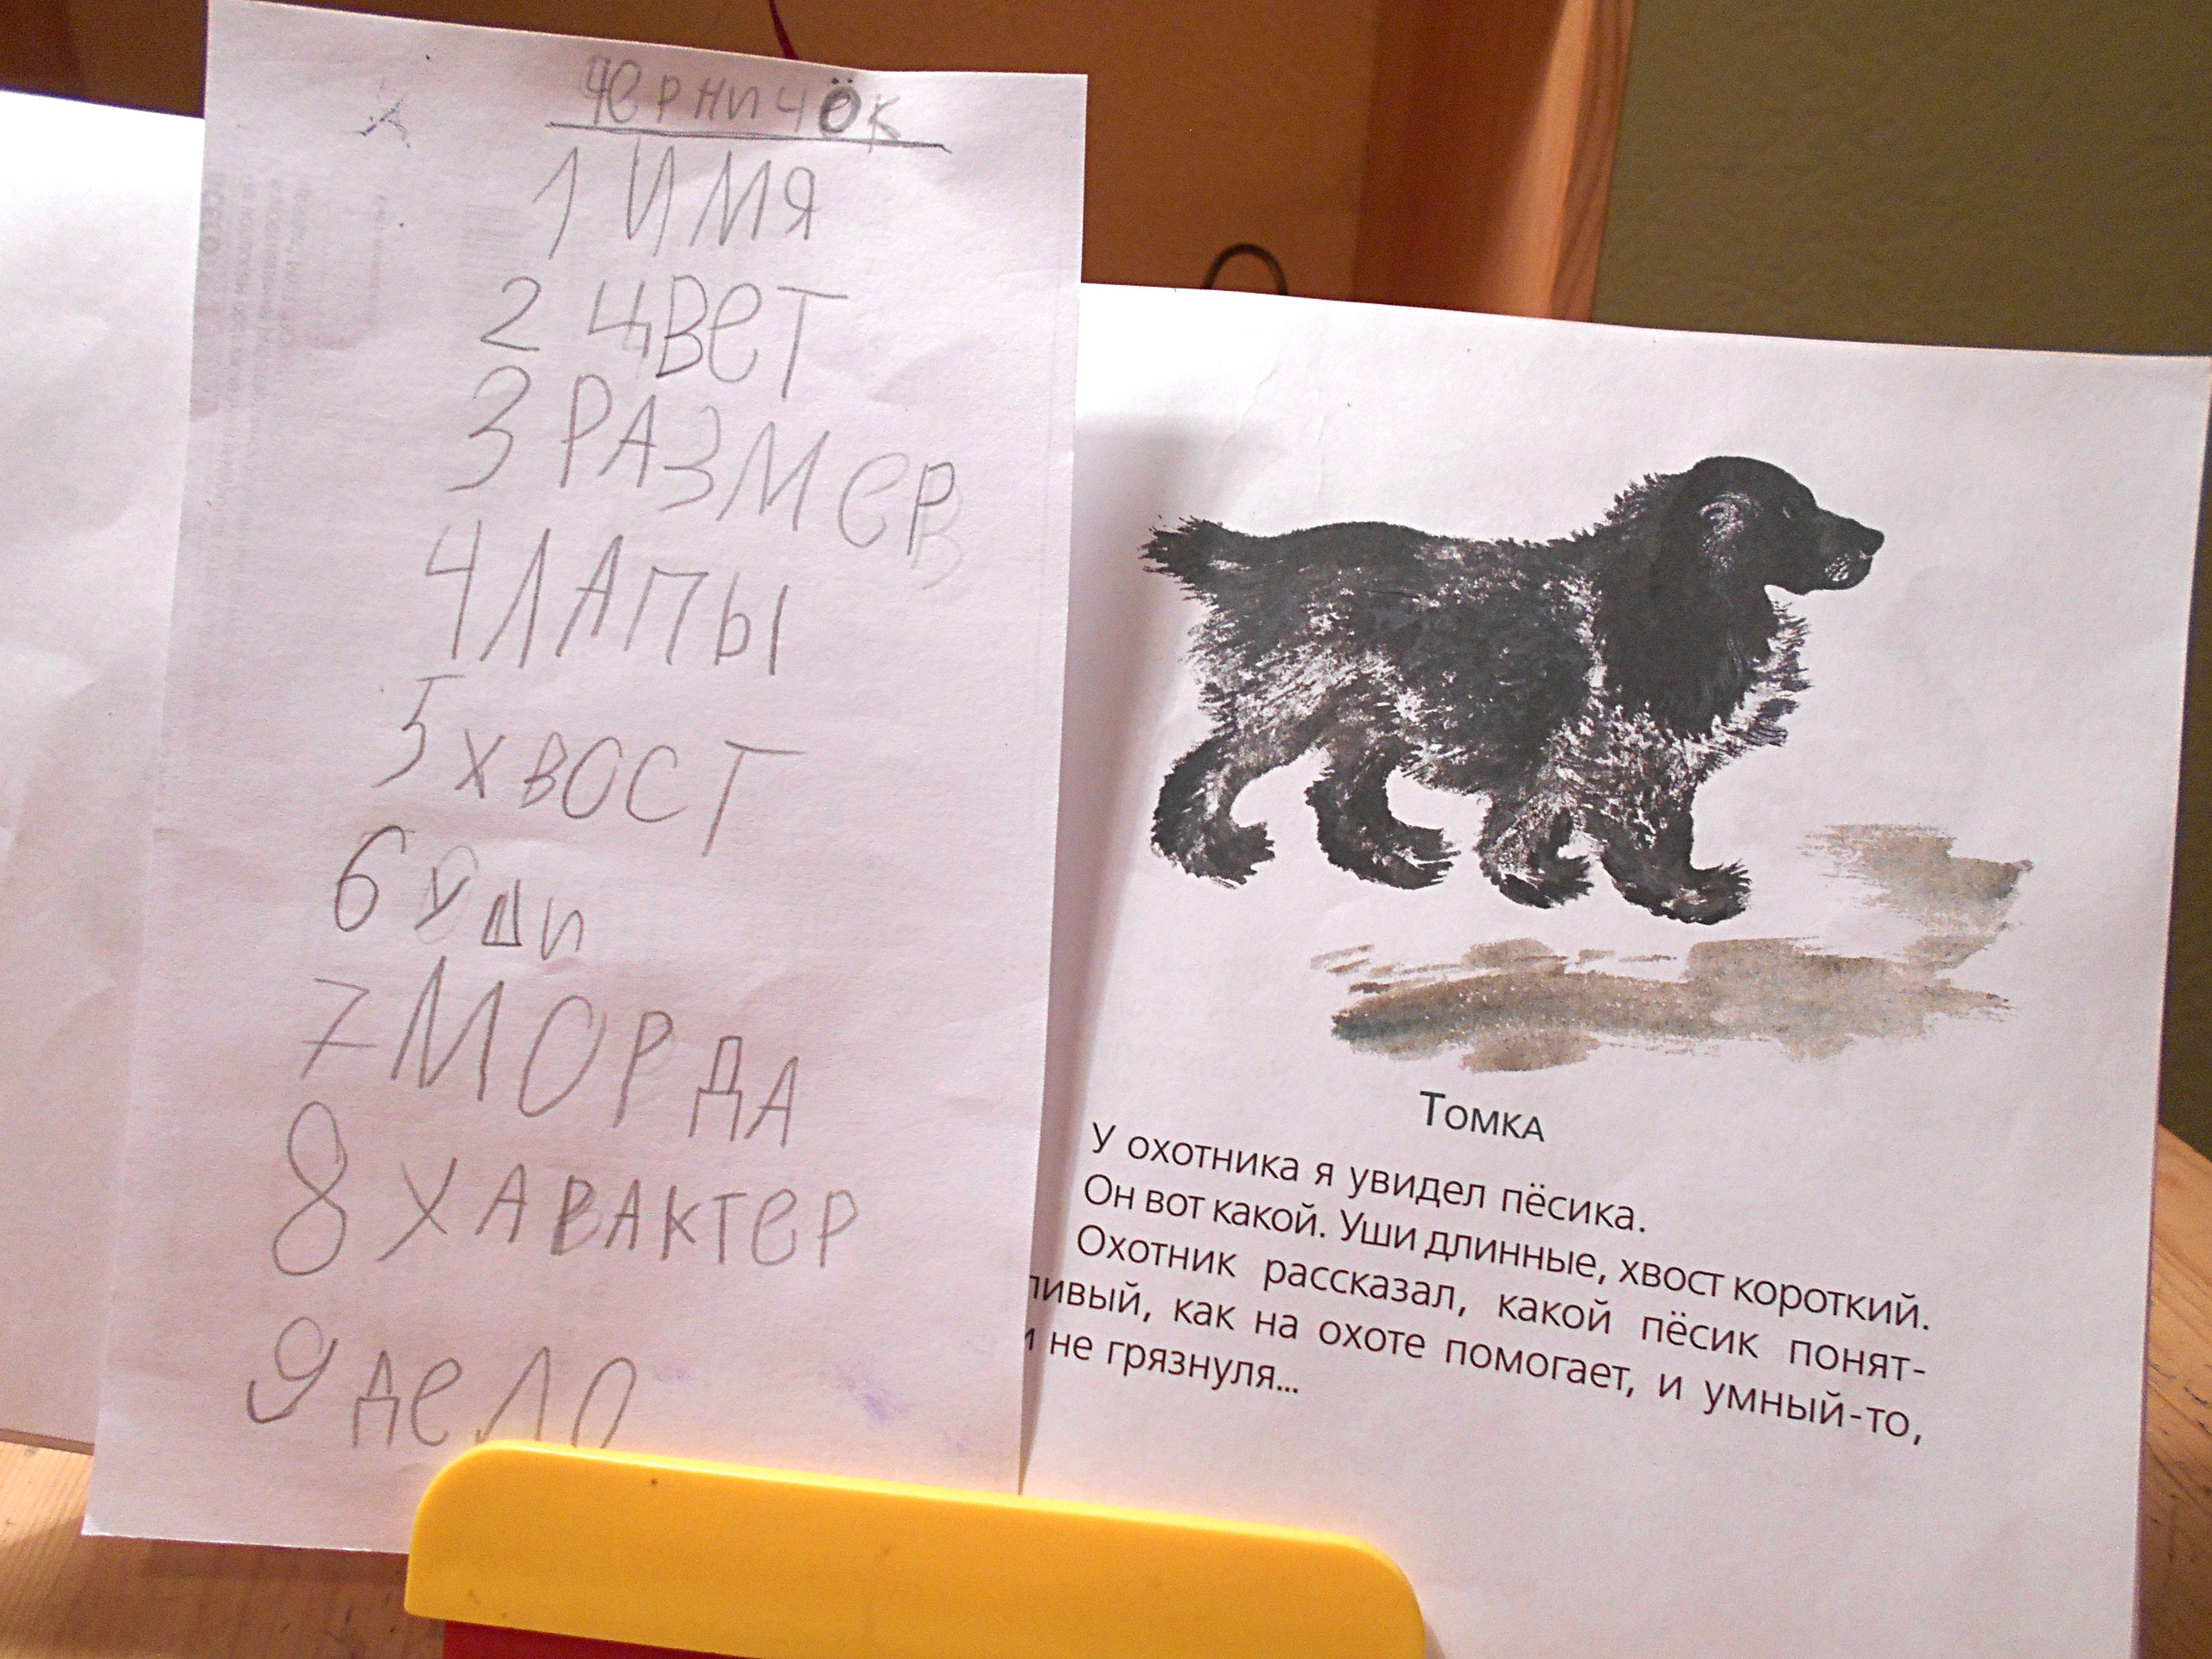 Черничёк
1 ИМЯ
2 ЦВеТ
3 РАЗМеР
4 ЛАПЫ
5 ХВОСТ
6 Уши
7 МОРДА
8 ХАРАКТеР
9 ДеЛО
Томка
У охотника я увидел пёсика.
Он вот какой. Уши длинные, хвост короткий.
Охотник рассказал, какой пёсик понят-
ливый, как на охоте помогает, и умный-то,
и не грязнуля...